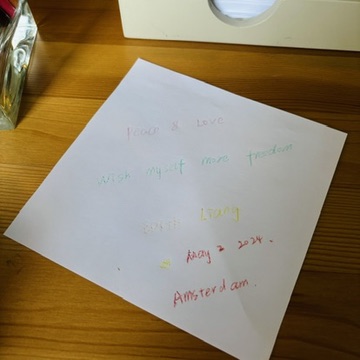 Peace & Love
Wish myself more freedom
Liung
May 2 2024.
Amsterdam.